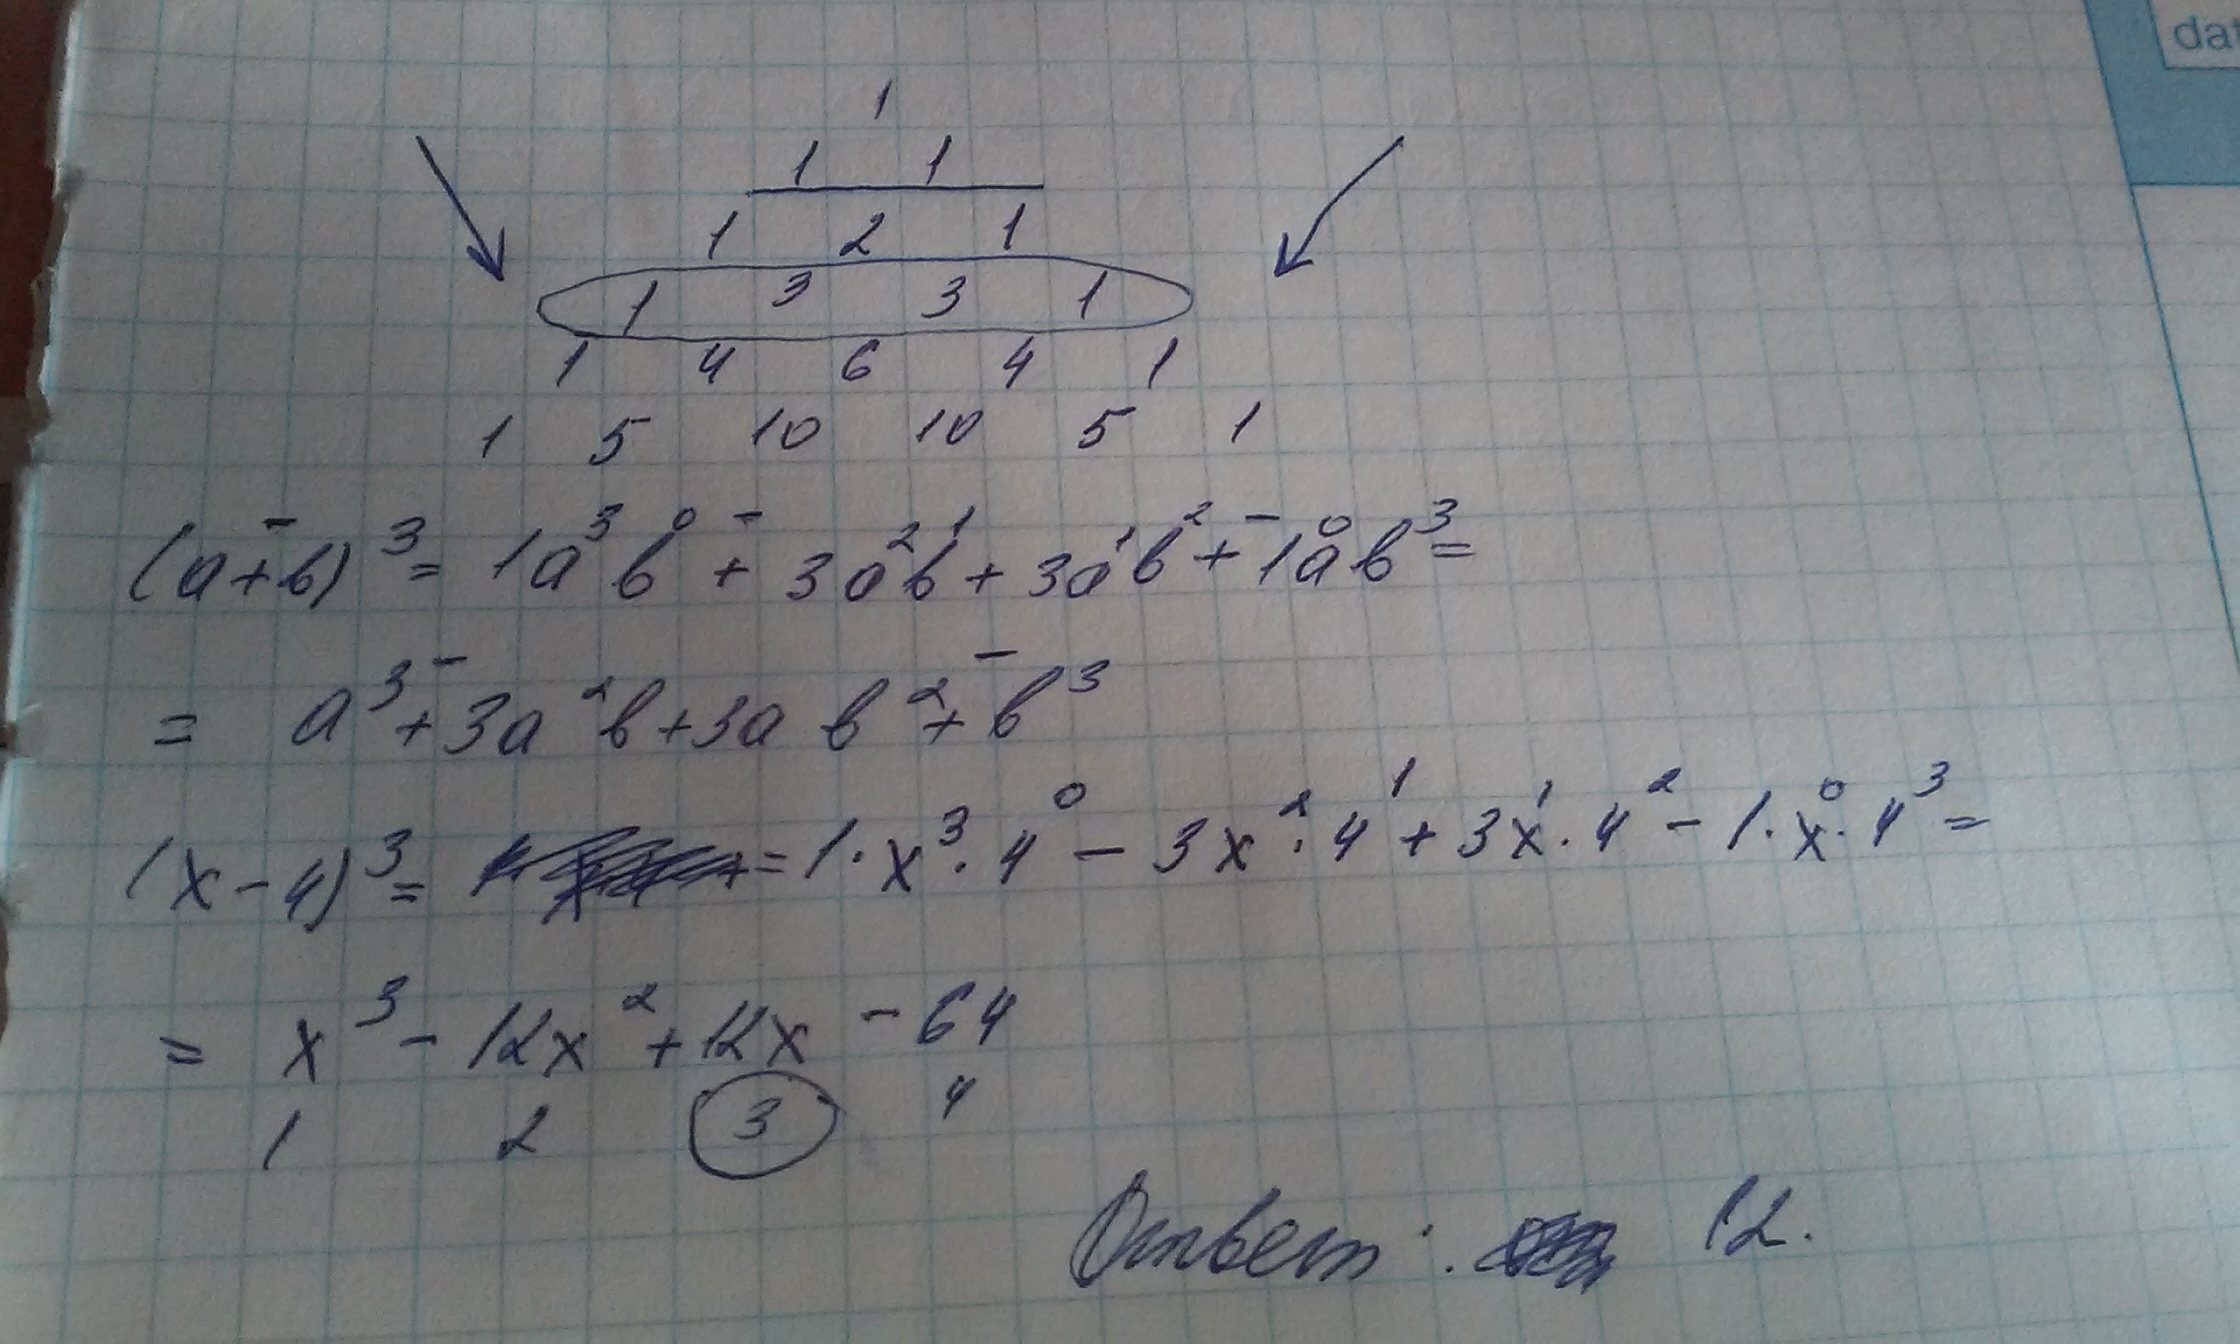 dat
1
1 1
1 2 1
1 3 3 1
1 4 6 4 1
1 5 10 10 5 1
(a ∓ b)³ = 1a³b⁰ ∓ 3a²b¹ + 3a¹b² ∓ 1a⁰b³ =
= a³ ∓ 3a²b + 3ab² ∓ b³
(x - 4)³ = = 1 · x³ · 4⁰ - 3x² · 4¹ + 3x¹ · 4² - 1 · x⁰ · 4³ =
= x³ - 12x² + 12x - 64
1 2 3 4
Ответ: 12.